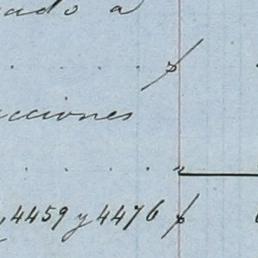 ado a
. . . . $
cciones
. . . . "
y 4459 y 4476 $